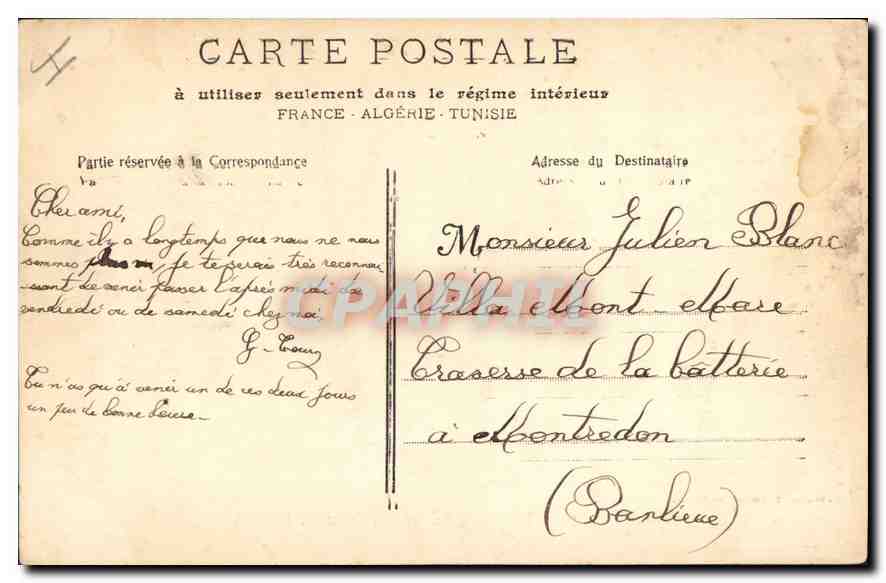 CARTE POSTALE
à utiliser seulement dans le régime intérieur
FRANCE - ALGÉRIE - TUNISIE
Partie réservée à la Correspondance
Cher ami,
Comme il y a longtemps que nous ne nous
sommes , je te serais très reconnais
-sant de venir passer l'après midi de
vendredi ou de samedi chez moi
G-
Tu n'as qu'à venir un de ces deux jours
un peu de bonne heure-
Adresse du Destinataire
Monsieur Julien Blanc
Villa Mont-Mare
Traverse de la battérie
à Montredon
(Banlieue)
CPAPHIL